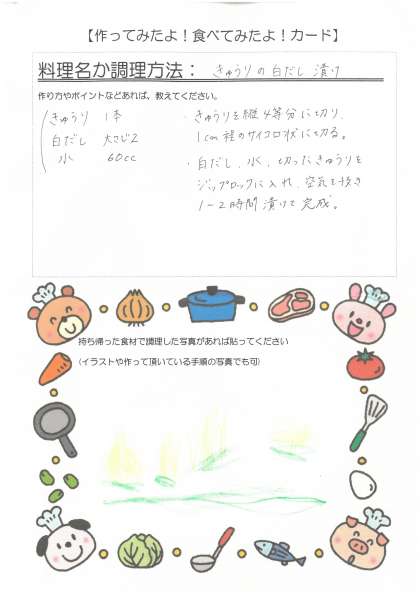 【作ってみたよ！食べてみたよ！カード】
料理名か調理方法： きゅうりの白だし漬け
作り方やポイントなどあれば、教えてください。
きゅうり 1本
白だし 大さじ2
水 60cc
・きゅうりを縦4等分に切り、
1cm程のサイコロ状に切る。
・白だし、水、切ったきゅうりを
ジップロックに入れ、空気を抜き
1－2時間漬けて完成。
持ち帰った食材で調理した写真があれば貼ってください
（イラストや作って頂いている手順の写真でも可）